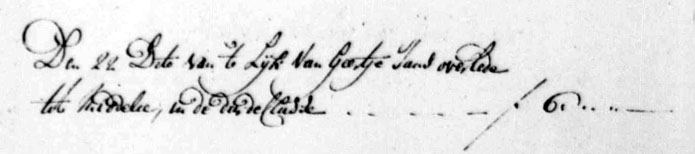 Den 22 Dito van 't Lijk van Geertje Jans overlede
tot Middelie, in de darde Classe - - - - - ƒ 6 " - " -